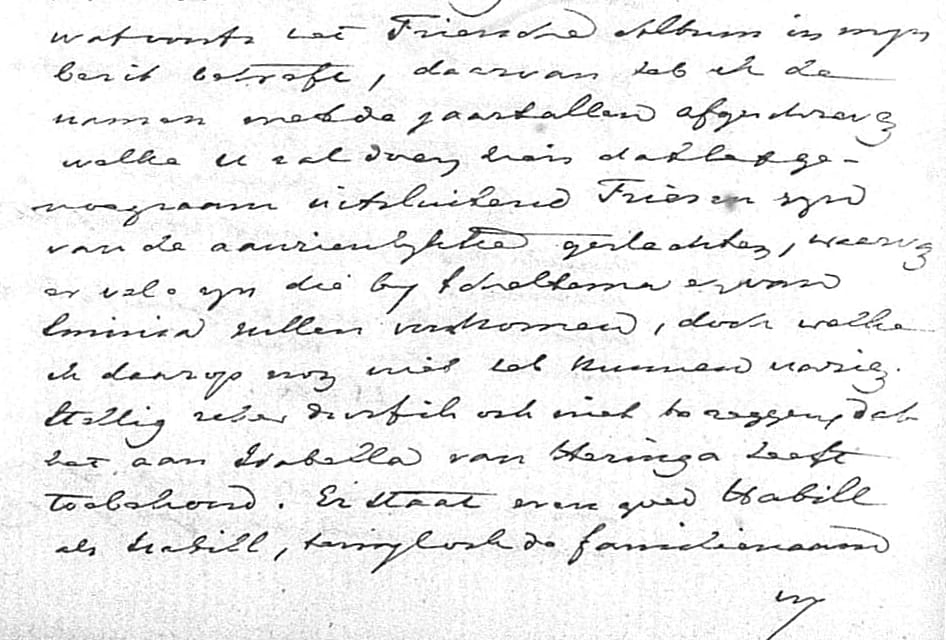 wat voorts het Friesche Album in mijn
bezit betreft, daarvan heb ik de
namen met de jaartallen afgeschreven
welke u zal doen zien dat het ge-
noegzaam uitsluitend Friesen zyn
van de aanzienlykste geslachten, waarvan
er vele zyn die by Scheltema en van
Eminia zullen voorkomen, doch welke
ik daarop nog niet heb kunnen nazien.
Stellig zeker durf ik ook niet te zeggen, dat
het aan Isabella van Heringa heeft
toebehoord. Er staat even goed Habill
als Isabill, terwyl ook de familienaam